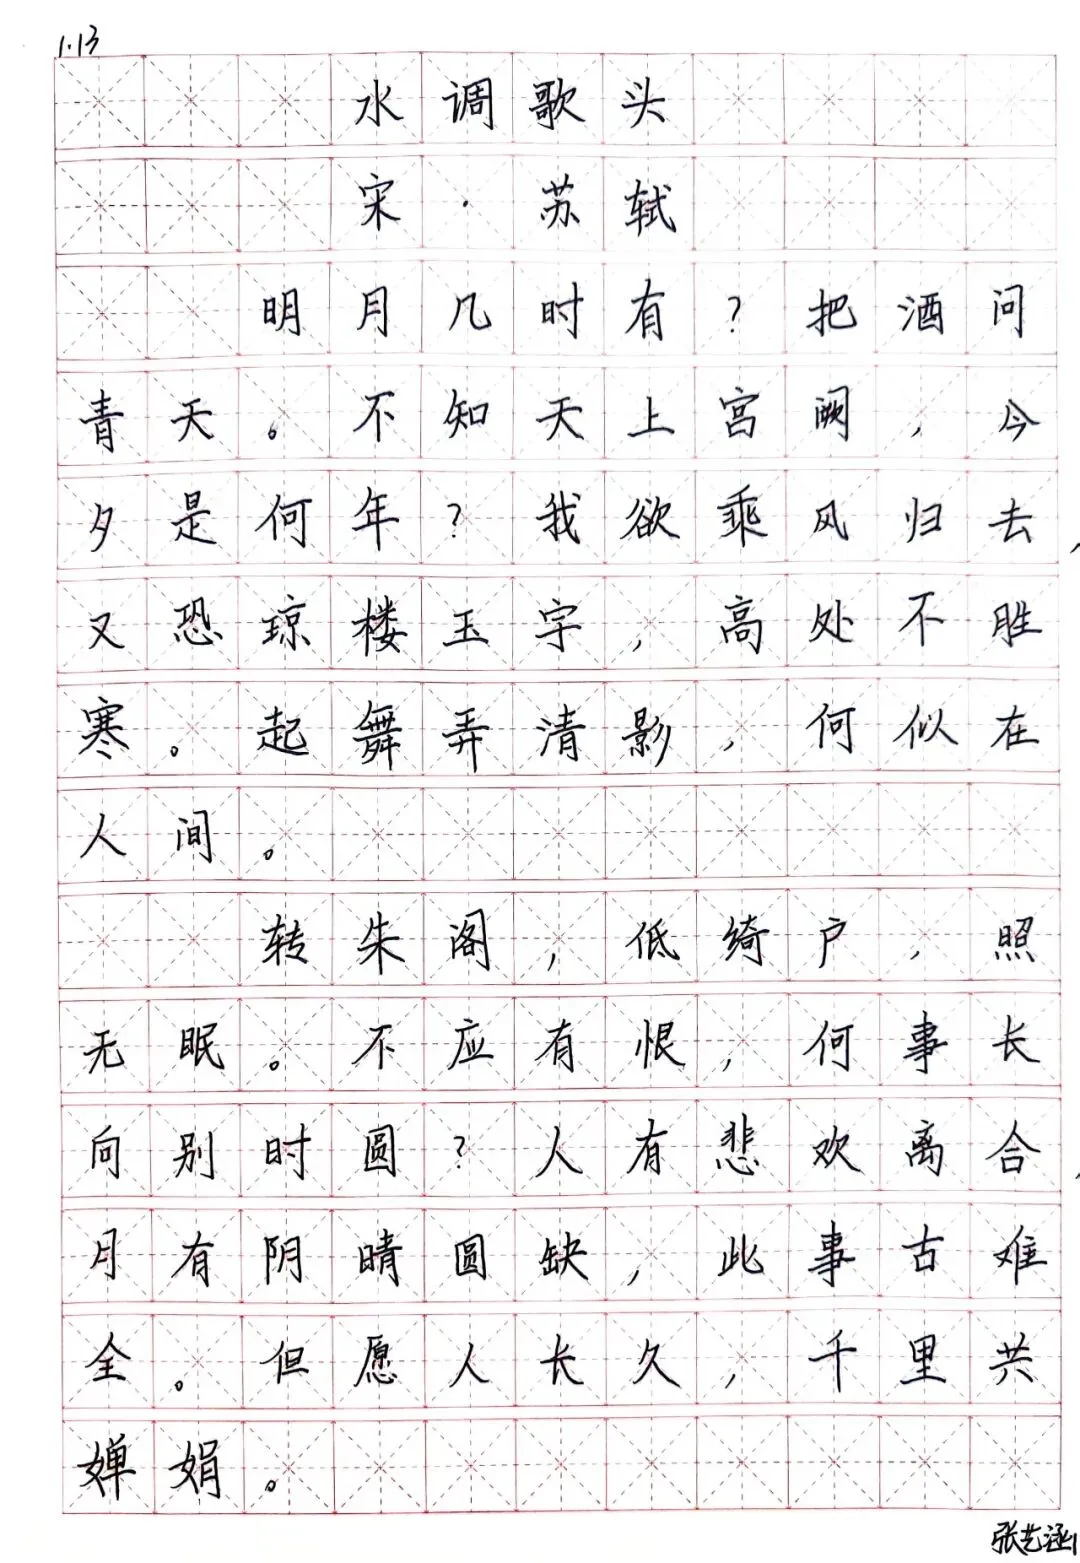 1.13
水调歌头
宋·苏轼
明月几时有?把酒问
青天。不知天上宫阙,今
夕是何年?我欲乘风归去,
又恐琼楼玉宇,高处不胜
寒。起舞弄清影,何似在
人间。
转朱阁,低绮户,照
无眠。不应有恨,何事长
向别时圆?人有悲欢离合,
月有阴晴圆缺,此事古难
全。但愿人长久,千里共
婵娟。
张艺涵